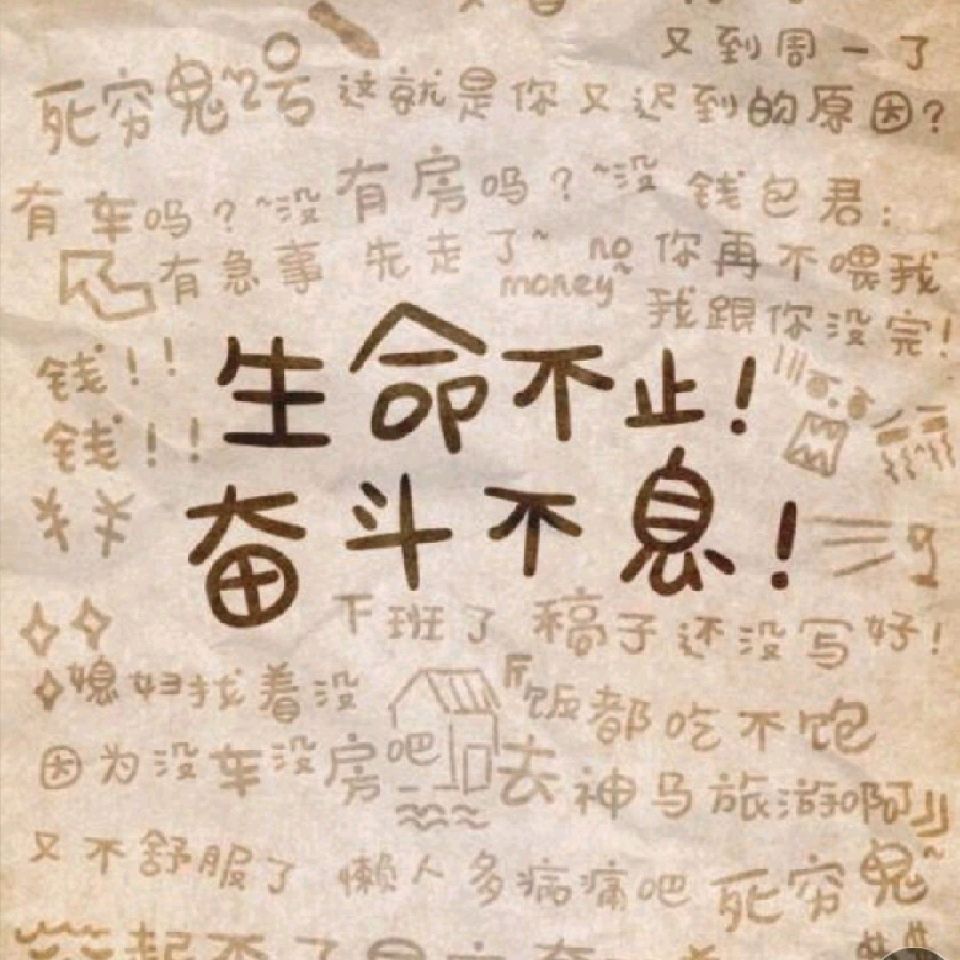 又到周一了
死穷鬼~2号 这就是你又迟到的原因?
有车吗?~没有房吗?~没 钱包君:
有急事 先走了~ no money~ 你再不喂我
我跟你没完!
钱!!
生命不止!
钱!!
¥¥
奋斗不息!
下班了 稿子还没写好!
媳妇找着没
饭都吃不饱
因为没车没房吧
去神马旅游啊
又不舒服了 懒人多病痛吧 死穷鬼~